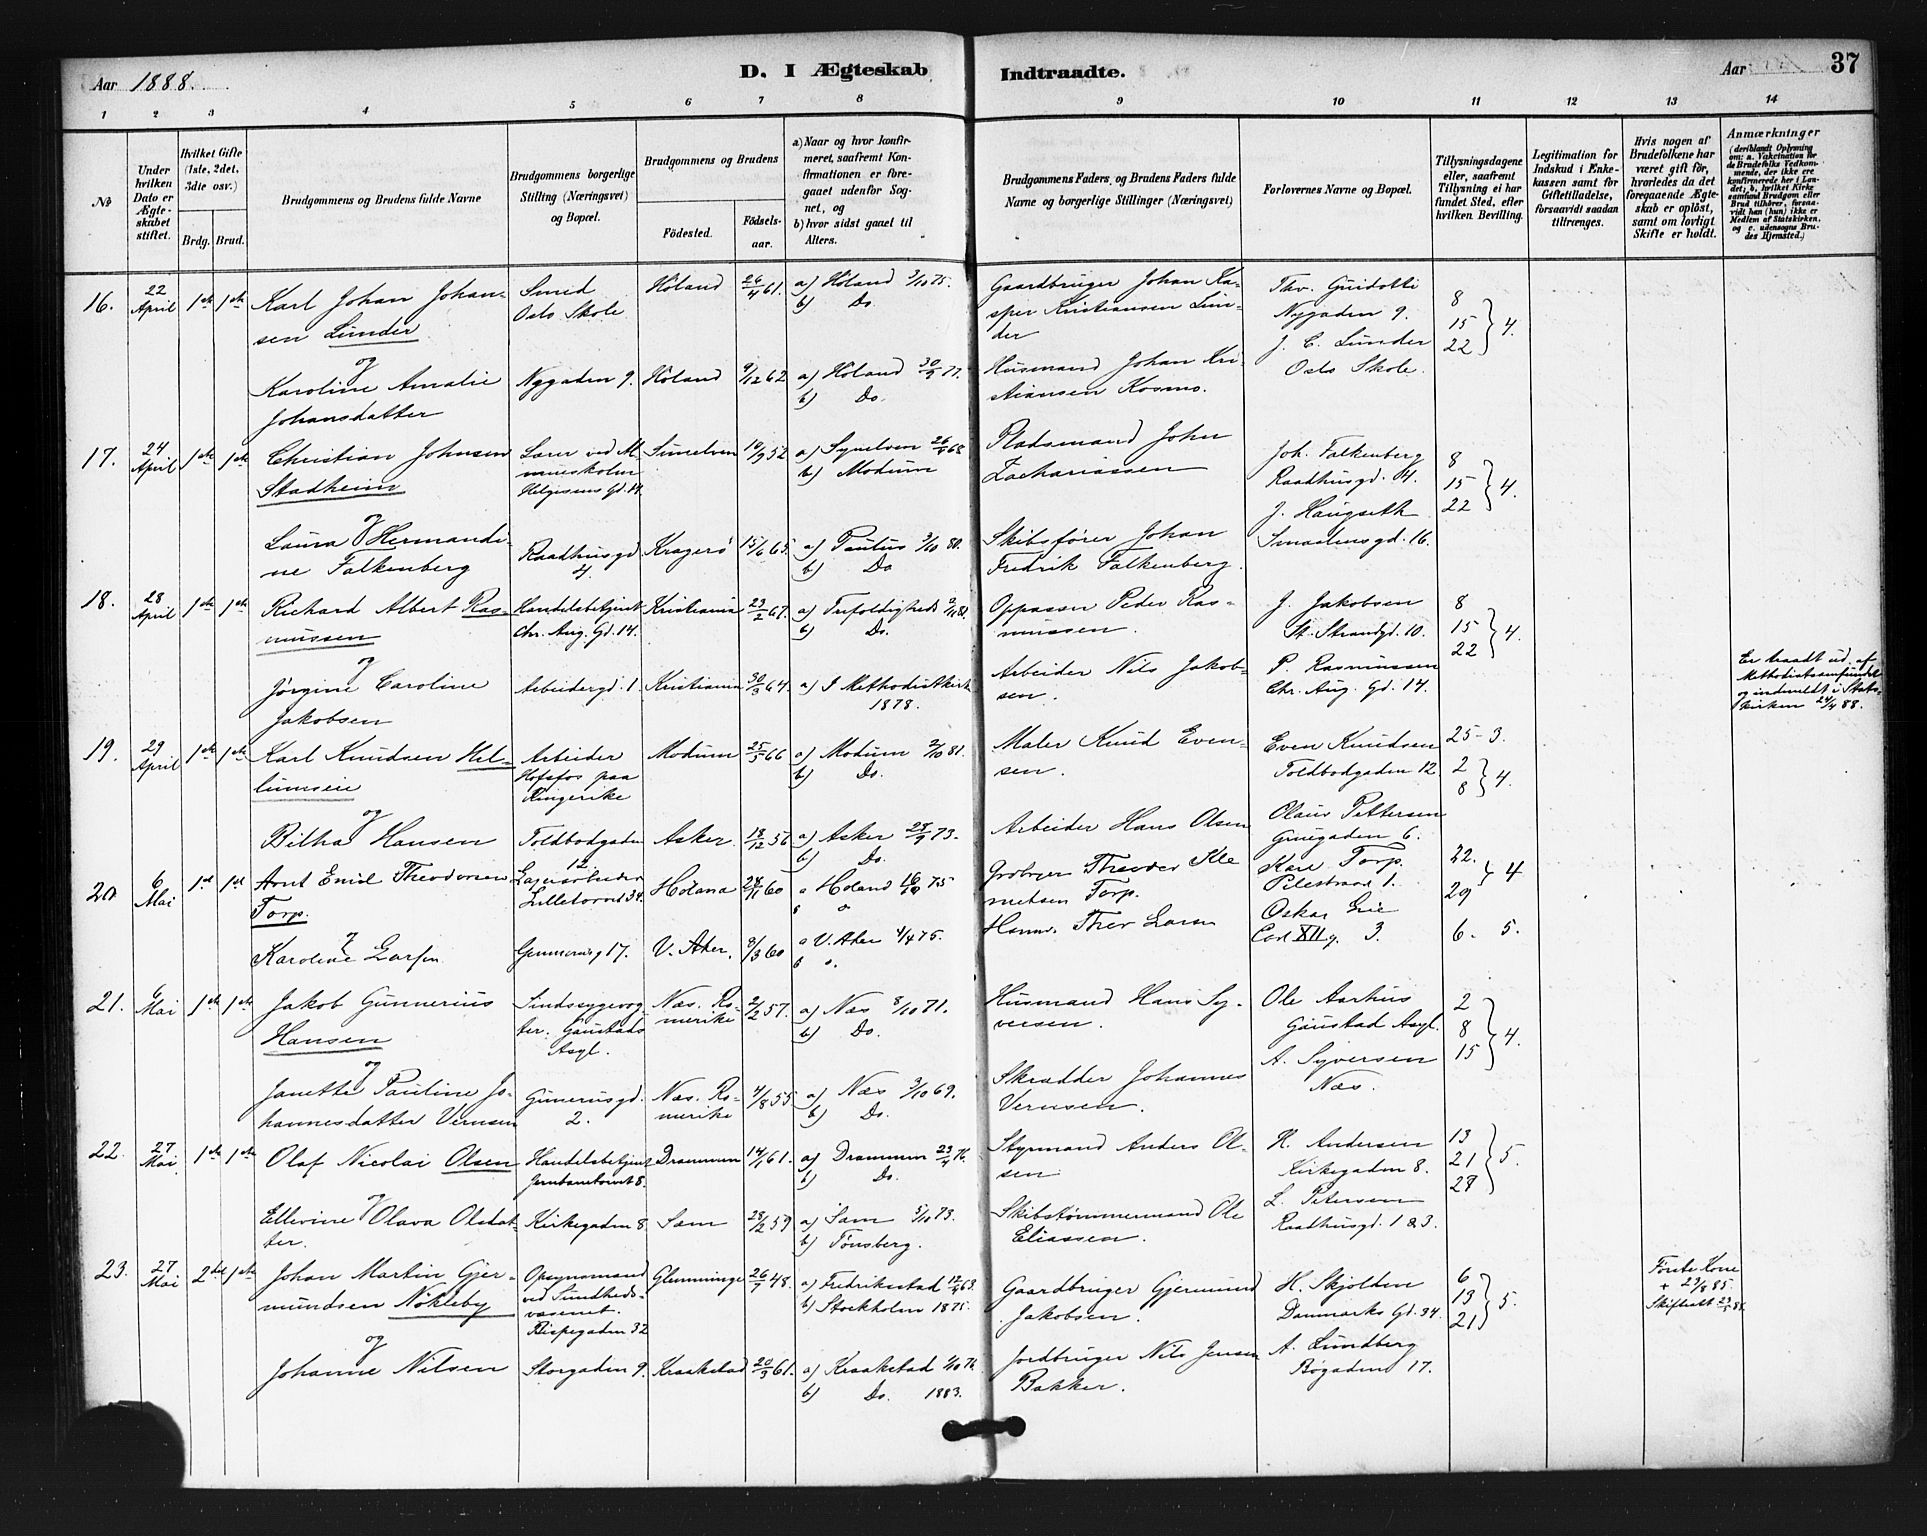 Aar 1888.
D. I Ægteskab Indtraadte.
Aar
37
1 2 3 4 5 6 7 8 9 10 11 12 13 14
No
Under hvilken Dato er Ægteskabet stiftet.
Hvilket Gifte (1ste, 2det, 3die osv.)
Brdg. Brud.
Brudgommens og Brudens fulde Navne
Brudgommens borgerlige Stilling (Næringsvei) og Bopæl.
Brudgommens og Brudens
Fødested.
Fødselsaar.
a) Naar og hvor konfirmeret, saafremt Konfirmationen er foregaaet udenfor Sognet, og
b) hvor sidst gaaet til Alters.
Brudgommens Faders, og Brudens Faders fulde Navne og borgerlige Stillinger (Næringsvei)
Forlovernes Navne og Bopæl.
Tillysningsdagene eller, saafremt Tillysning ei har fundet Sted, efter hvilken Bevilling.
Legitimation for Indskud i Enkekassen samt for Giftetilladelse, forsaavidt saadan tiltrænges.
Hvis nogen af Brudefolkene har været gift før, hvorledes da det foregaaende Ægteskab er opløst, samt om lovligt Skifte er holdt.
Anmærkninger
(deriblandt Oplysning om: a. Vaksination for de Brudefolks Vedkommende, der ikke ere konfirmerede her i Landet; b. hvilket Kirkesamfund Brudgom eller Brud tilhører, forsaavidt han (hun) ikke er Medlem af Statskirken, og c. udensogns Brudes Hjemsted.)
16. 22 April 1ste 1ste Karl Johan Johansen Lunder
Smed Oslo Skole
Höland 26/4 61.
a) Höland 3/10 75.
b) Do.
Gaardbruger Johan Kasper Kristiansen Lunder
Thv. Guidotti
Nygaden 9.
J. C. Lunder
Oslo Skole.
8 15 22 } 4.
og
Karoline Amalie Johansdatter
Nygaden 9. Höland 9/12 62
a) Höland 30/9 77.
b) Do.
Husmand Johan Kristiansen Kosmo.
17. 24 April 1ste 1ste Christian Johnsen Stadheim
Lærer ved Helgesens Gd. 14
Sunelven 10/9 52
a) Synelven 26/ 68
b) Modum
Pladsmand John Zachariassen
Joh. Falkenberg
Raadhusgd. 4.
J. Haugseth
Smaalensgd. 16.
8 15 22 } 4.
og
Laura Hermandine Falkenberg
Raadhusgd 4. Kragerö 15/6 65.
a) Paulus 3/10 80.
b) Do
Skibsfører Johan Fredrik Falkenberg.
18. 28 April 1ste 1ste Richard Albert Rasmussen
Handelsbetjent Chr. Aug. Gd. 14.
Kristiania 23/2 67.
a) Trefoldigheds 2/10 81.
b) Do.
Oppasser Peder Rasmussen.
J. Jakobsen
St. Strandgd. 10.
P. Rasmussen
Chr. Aug. Gd. 14.
8 15 22 } 4.
og
Jørgine Caroline Jakobsen
Arbeidergd. 1. Kristiania 30/3 64.
a) I Methodistkirk 1878.
Arbeider Nils Jakobsen.
Er traadt ud af Methodistsamfundet og indmeldt i Statskirken 24/4 88.
19. 29 April 1ste 1ste Karl Knudsen Hellumseie
Arbeider Hofsfos paa Ringerike
Modum 25/5 66
a) Modum 2/10 81.
b) Do.
Maler Knud Evensen.
Even Knudsen
Toldbodgaden 12.
Olaus Pettersen
Gruegaden 6.
25-3. 2 8 } 4.
og
Bilha Hansen
Toldbodgaden 12. Asker. 18/12 56
a) Asker 28/9 73.
b) Do.
Arbeider Hans Olsen
20 6 Mai 1st 1st Arnt Emil Theodorsen Torp.
Lagerarbeider Lilletorvet 34
Höland 28/11 60
a Höland 75
b
Grdbrger Theodor Klemetsen Torp.
Karl Torp.
Pilestræd 1.
Oskar
Carl XII g. 3.
22. 29 } 4
6. 5.
Karoline Larsen
17. V. Aker. 8/3 60
a V. Aker 4/4 75.
b
Larsen
21. 6 Mai 1ste 1ste Jakob Gunnerius Hansen
Sindssygevogter. Gaustads Asyl.
Næs. Romerike 2/2 57.
a) Næs 8/10 71.
b) Do.
Husmand Hans Syversen.
Ole Aarhus
Gaustad Asyl.
A. Syversen
Næs.
2 8 15 } 4.
og
Janette Pauline Johannesdatter Vernsen
Gunerusgd. 2. Næs. Romerike 4/8 55
a) Næs 3/10 69.
b) Do.
Skrædder Johannes Vernsen.
22. 27 Mai 1ste 1ste Olaf Nicolai Olsen
Handelsbetjent Jernbanetorvet 8.
Drammen 14/1 61.
a) Drammen 23/4 76.
b) Do.
Styrmand Anders Olsen
K. Andersen
Kirkegaden 8.
L. Petersen
Raadhusgd. 1 & 3.
13 21 27 } 5.
og
Ellevine Olava Olsdatter.
Kirkegaden 8. Sem 28/2 59
a) Sem 5/10 73.
b) Tönsberg.
Skibstømmermand Ole Eliassen.
23. 27 Mai 2det 1ste Johan Martin Gjermundsen Nökleby
Opsynsmand ved Sundhedsvæsenet. Bispegaden 32
Glemminge 26/7 48.
a) Fredriksstad 12/4 63.
b) Stockholm 1875.
Gaardbruger Gjermund Jakobsen.
H. Skjolden
Danmarks Gd. 34.
A. Lundberg
Bøgaden 17.
6 13 21 } 5.
Første Kone + 23/8 85.
og
Johanne Nilsen
Storgaden 9. Kraakstad 20/3 61.
a) Kraakstad 1/10 76.
b) Do. 1883.
Jordbruger Nils Jensen Bakker.